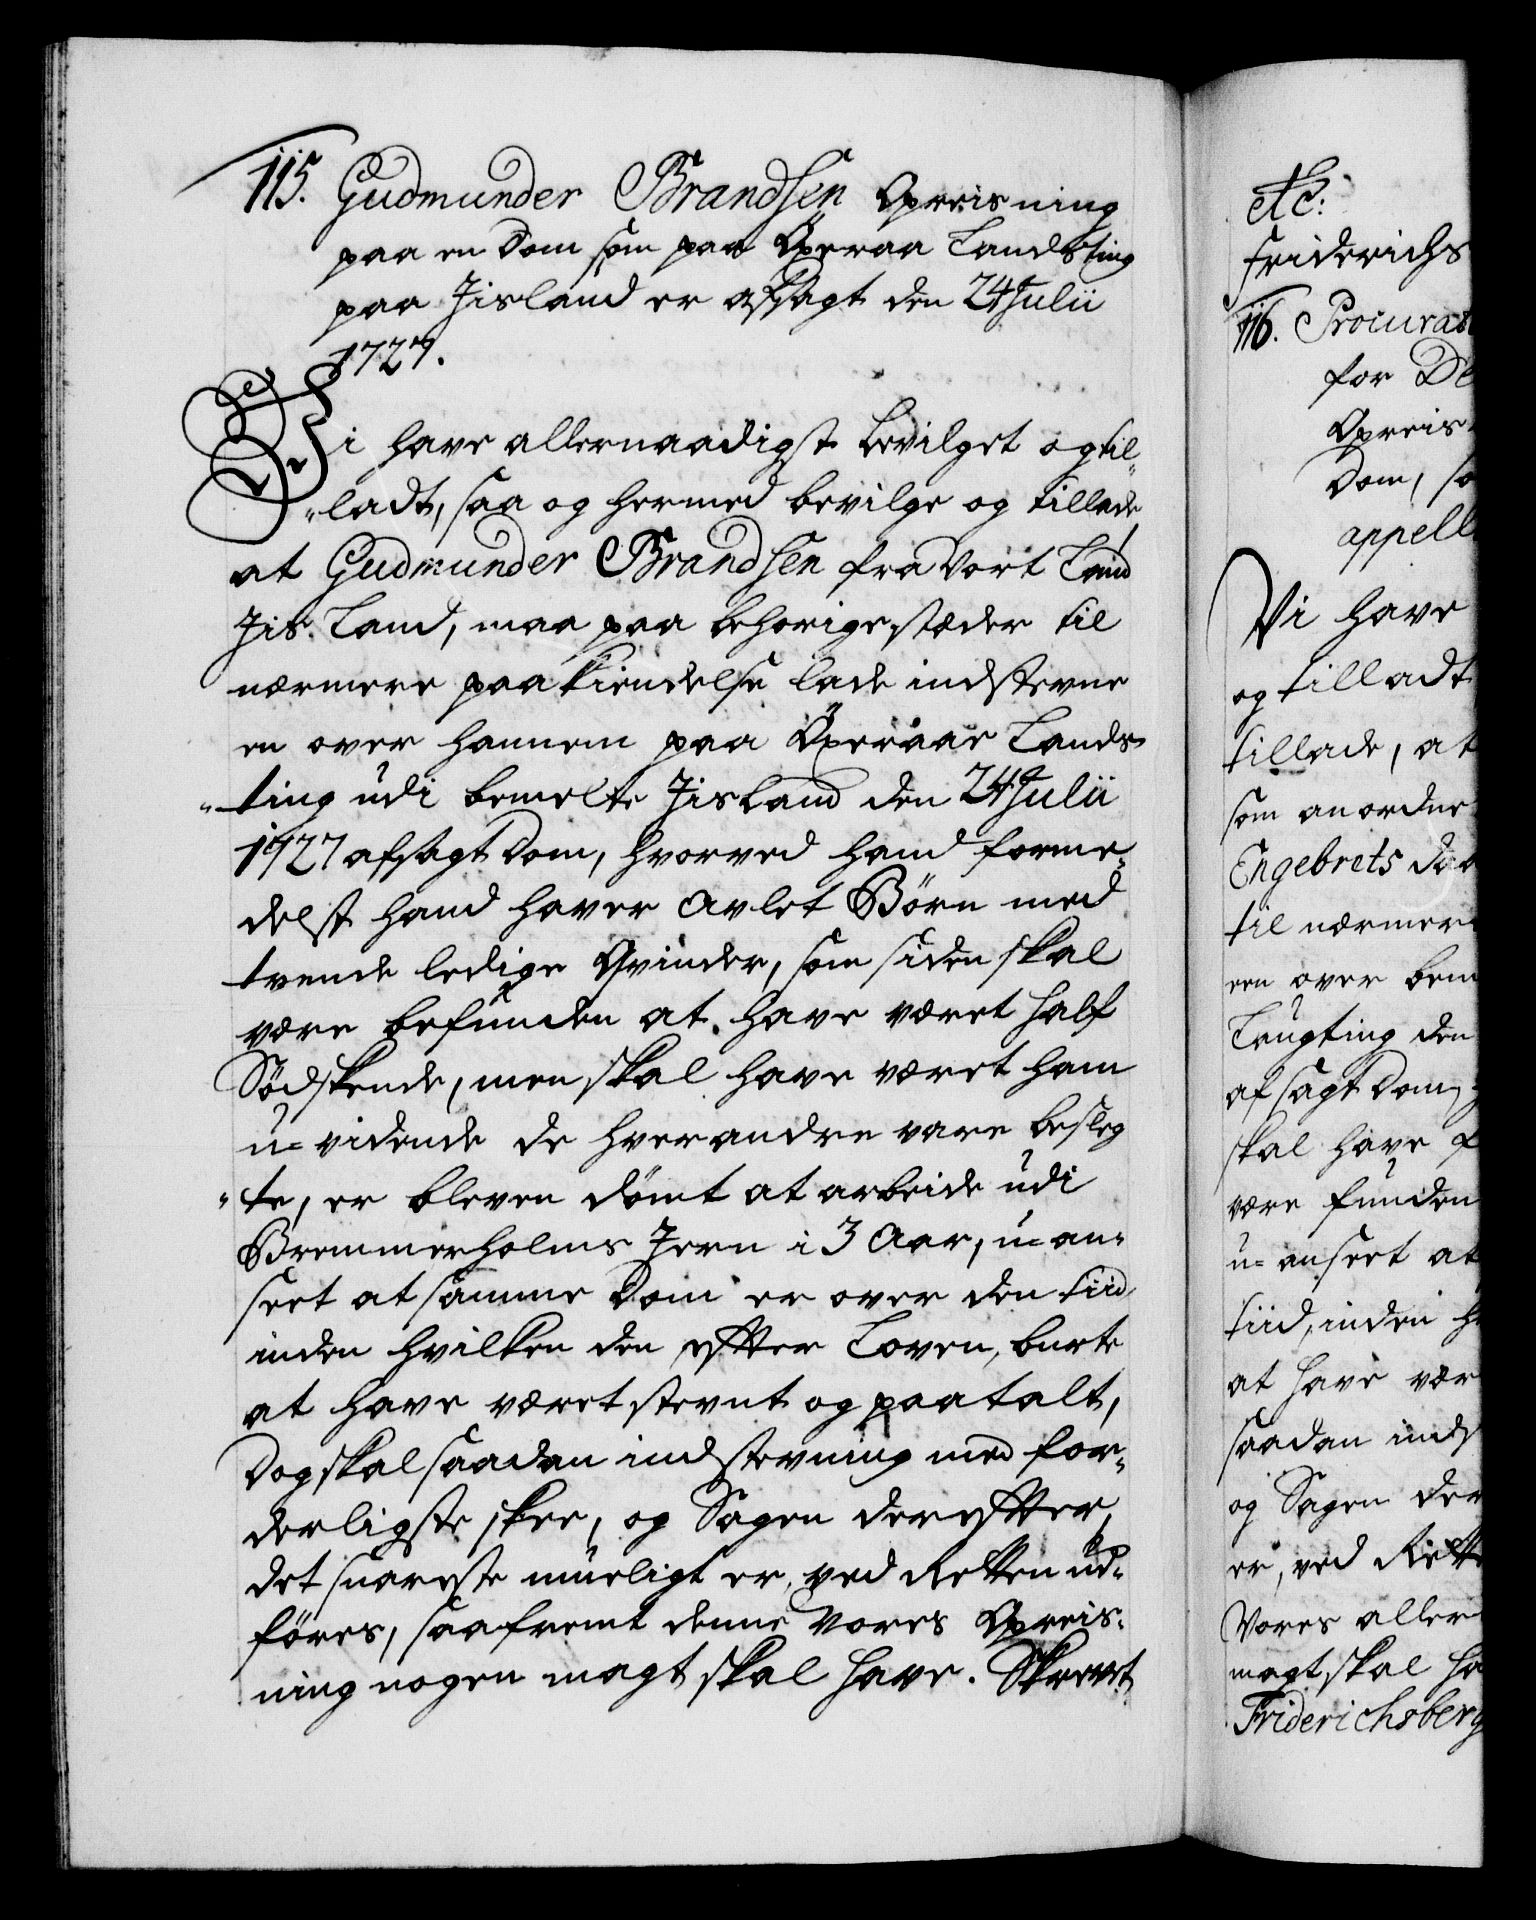 115. Gudmunder Brandsen Opreisning
paa en Dom som paa Öxeraa Landsting
paa Jisland er afsagt den 24 Julii
1727.
Vi have allernaadigst bevilget og til-
"ladt, saa og hermed bevilge og tillade,
at Gudmunder Brandsen fra Vort Land
Jis-Land, maa paa behörige stæder til
nærmere paakiendelse lade indstevne
en over hannem paa Öxeraae Lands-
"ting udi bemelte Jisland den 24 Julii
1727 afsagt Dom, hvorved hand forme-
delst hand haver avlet Börn med
tvende ledige Qvinder, som siden skal
være befunden at have været Half
Södskende, men skal have været ham
u-vidende de hverandre vare besleg
"te, er bleven dömt at arbeide udi
Bremmerholms Jern i 3 Aar, u-an-
seet at samme Dom er over den tiid
inden hvilken den efter Loven, burte
at have været stevnt og paatalt,
Dog skal saadan indstevning med for-
derligste skee, og Sagen derefter,
det snareste mueligt er, ved Retten ud-
föres, saafremt denne Vores Opreis-
ning nogen magt skal have. Skrevet
etc:
Friderichs
116. Procurat
for De
Opreis
Dom, so
appell
Vi have
og tilladt
tillade, at
som anordne
Engebrets daa
til nærmere
een over bem
Laugting den
afsagt Dom,
skal have f
være funden
u-anseet at
tiid, inden h
at have vær
saadan inds
og Sagen der
er, ved Rett
Vores aller
magt skal ha
Friderichsberg